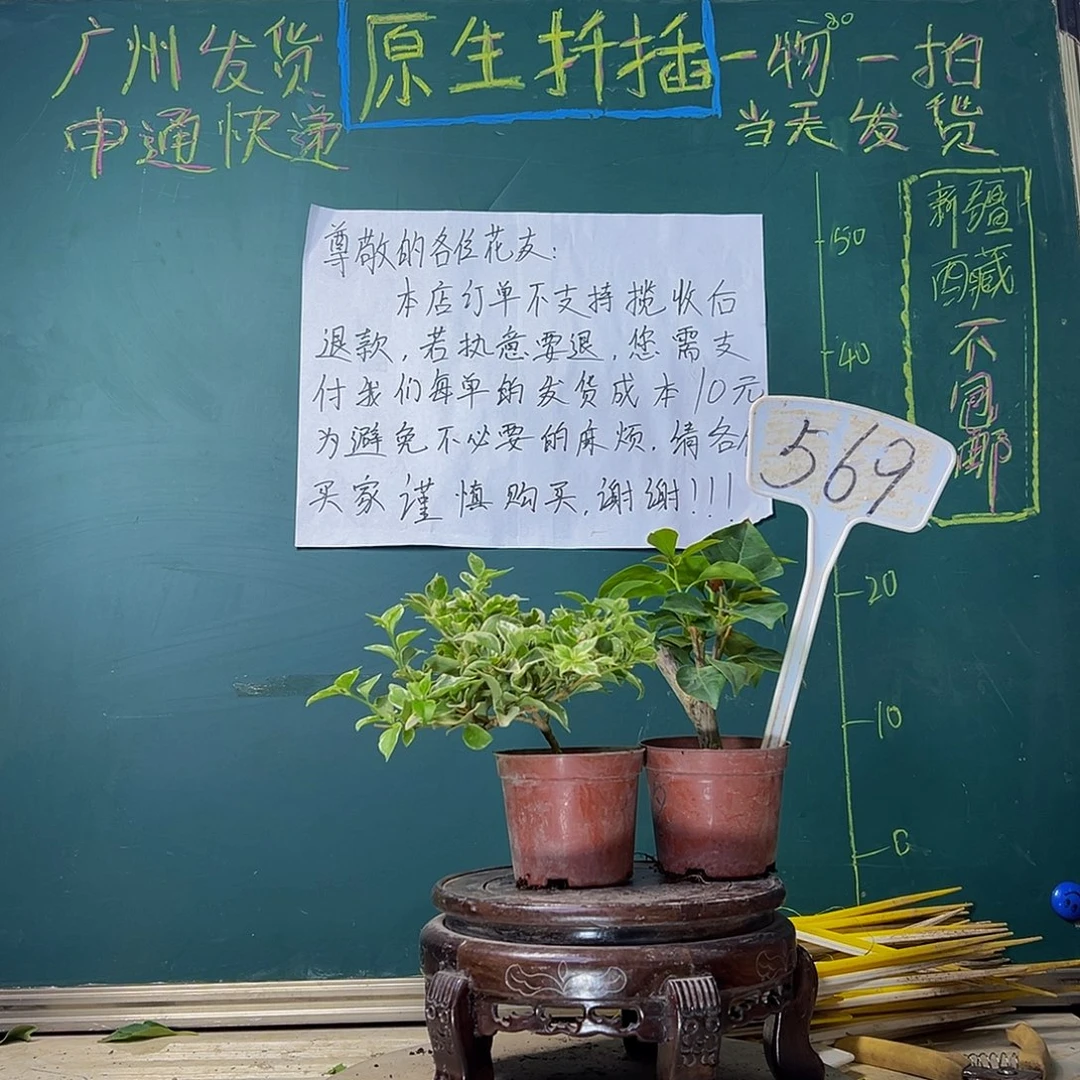 广州发货
申通快递
原生扦插
一物一拍
80
当天发货
新疆
西藏
不包邮
尊敬的各位花友:
本店订单不支持揽收后
退款,若执意要退,您需支
付我们每单的发货成本10元
为避免不必要的麻烦.请各位
买家谨慎购买,谢谢!!!
50
40
569
20
10
0